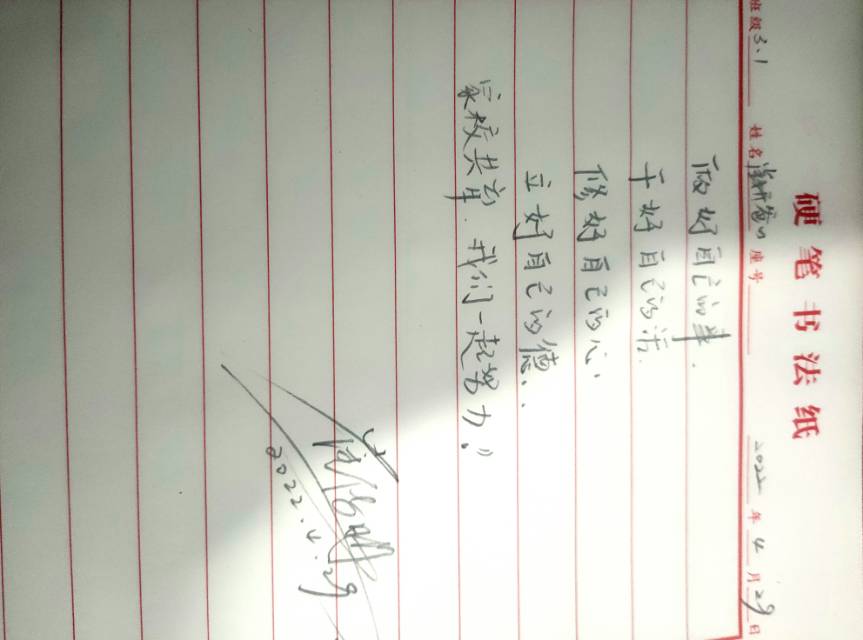 硬笔书法纸
班级3.1 姓名 爸爸 座号 2022年4月29日
做好自己的事.
干好自己的活.
修好自己的心.
立好自己的德.
家校共育.我们一起努力."
2022.4.29